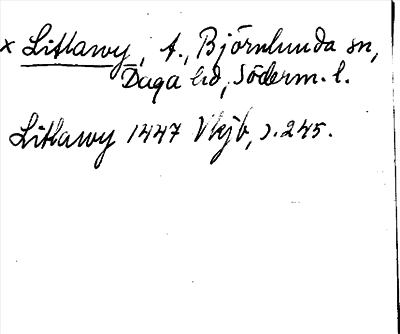 × Litlawy, t., Björnlunda sn,
Daga hd, Söderm. l.
Litlawy 1447 Vkjb, s. 245.